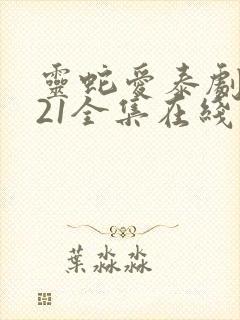 靈蛇愛泰劇
21全集在綫
葉淼淼